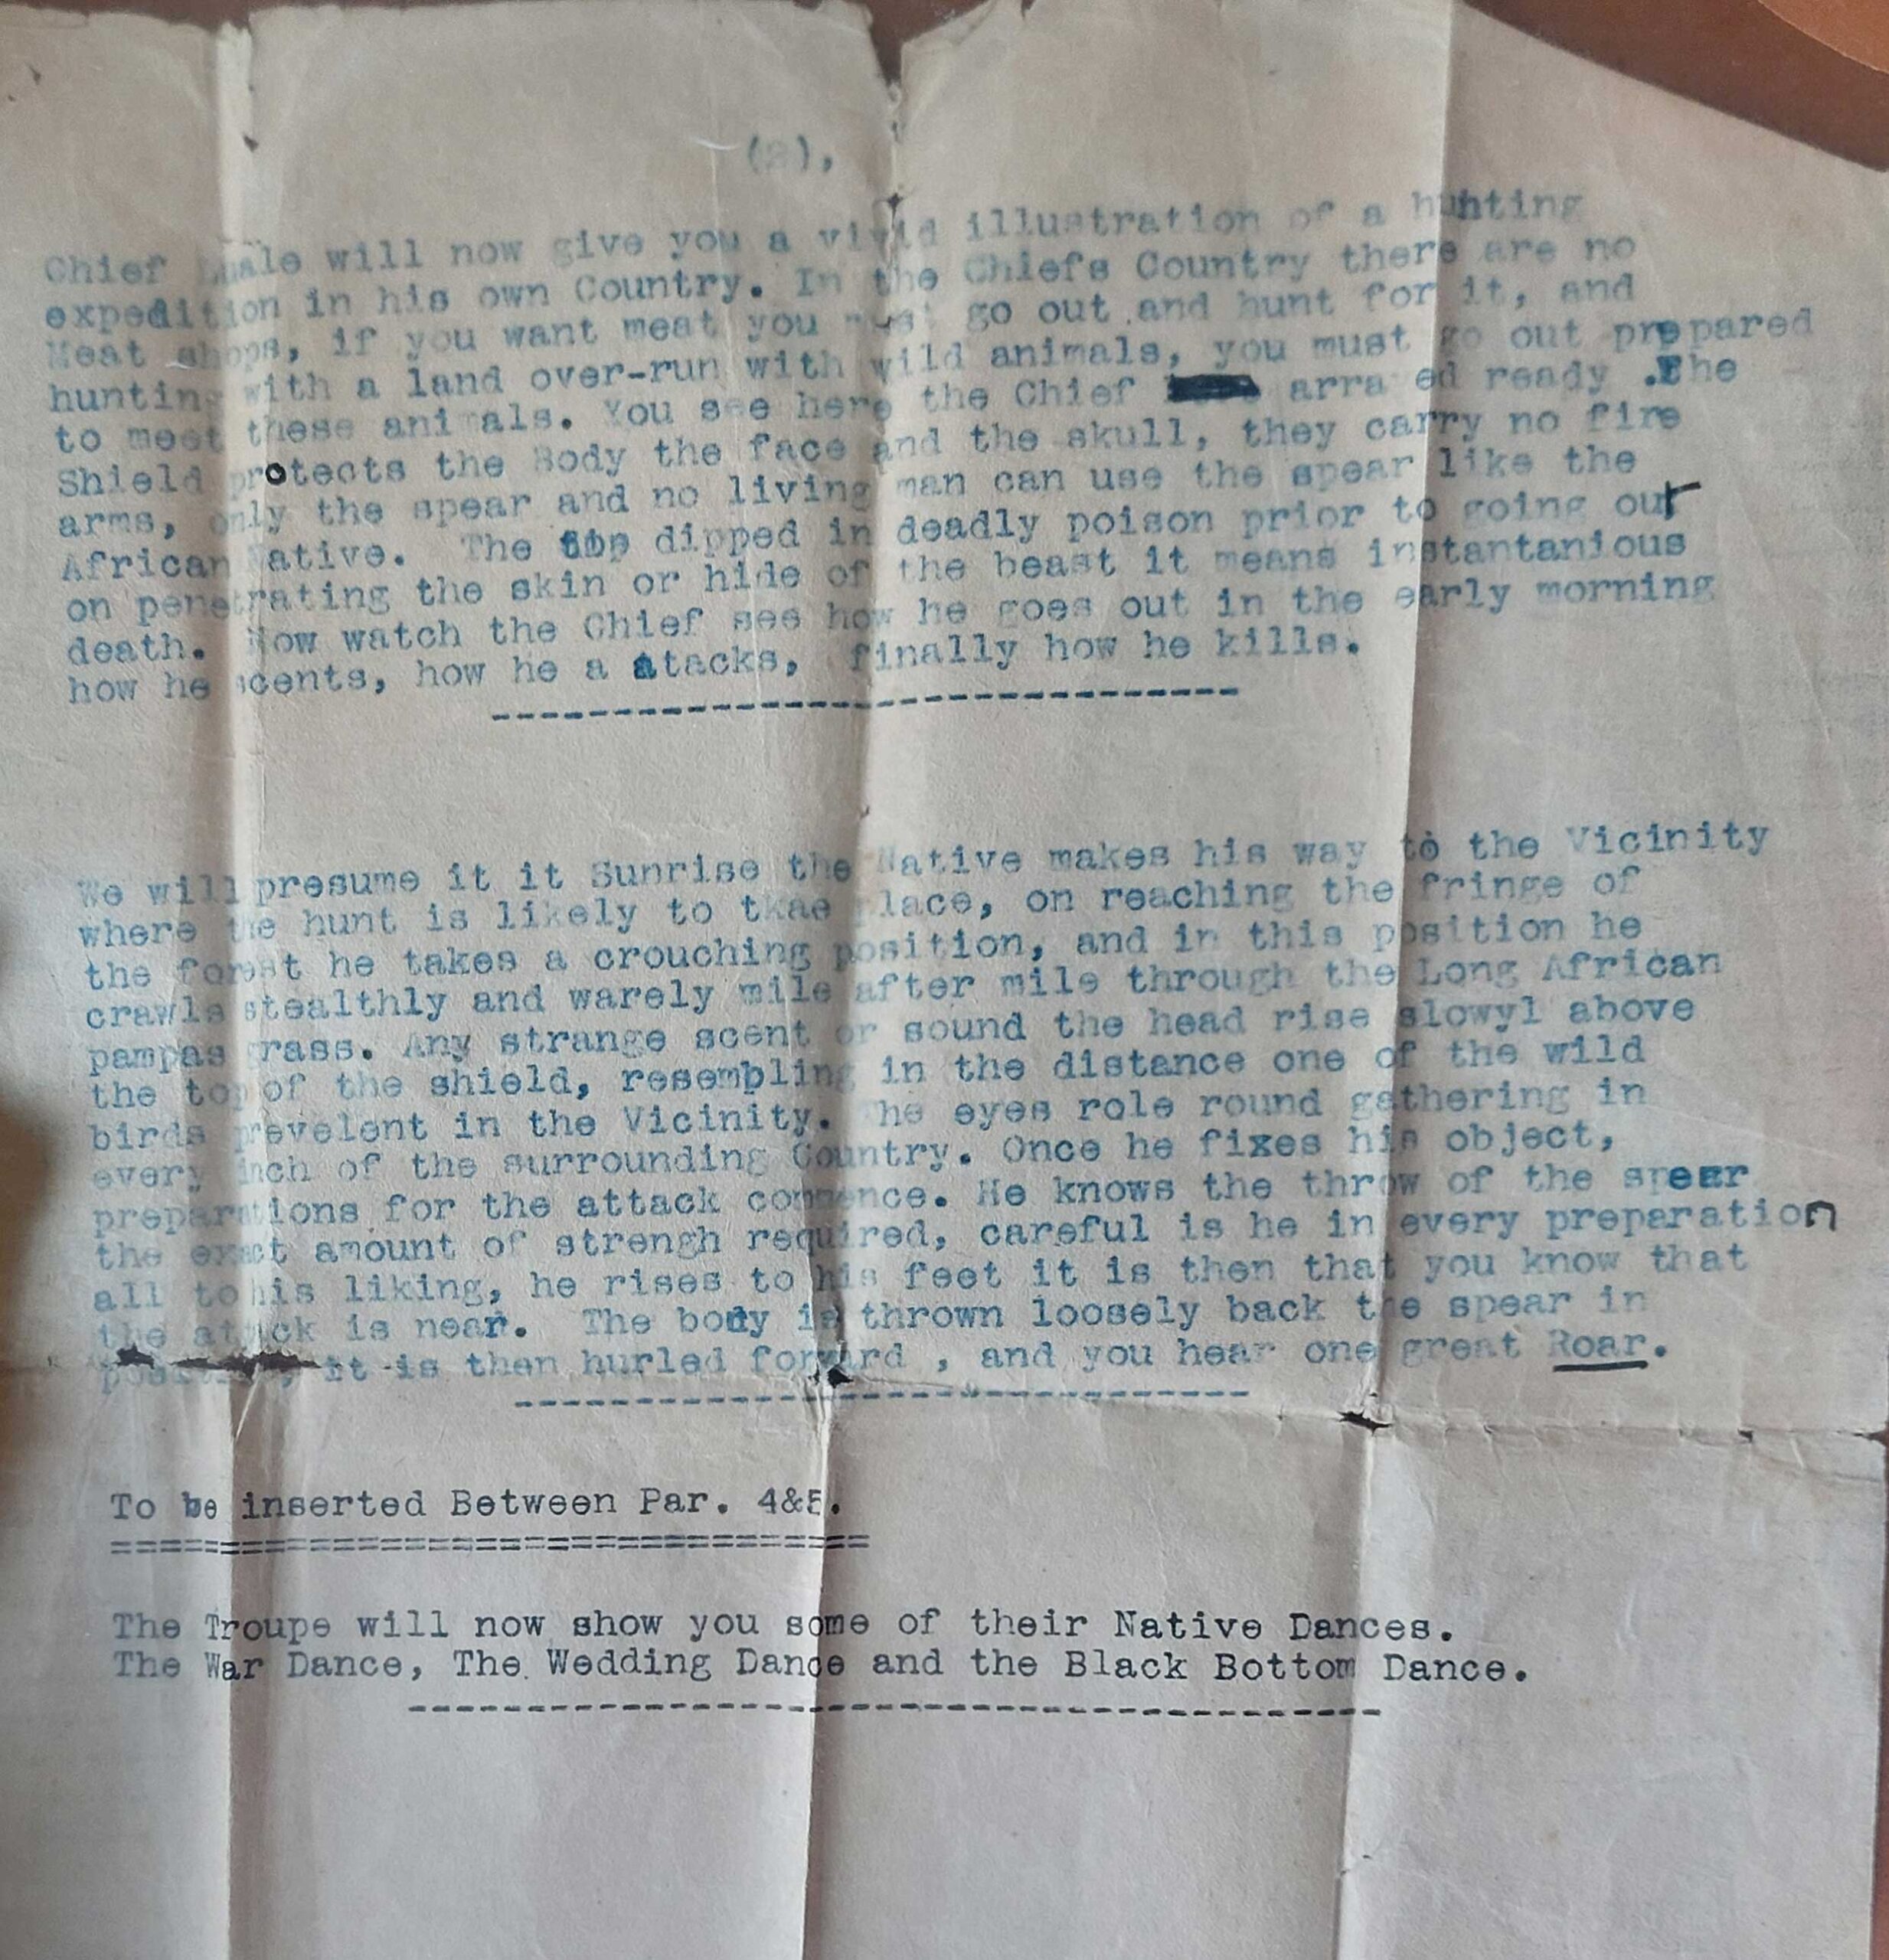 (2),
Chief will now give you a vivid illustration of a hunting
expedition in his own Country. In the Chiefs Country there are no
Meat shops, if you want meat you must go out and hunt for it, and
hunting with a land over-run with wild animals, you must go out prepared
to meet these animals. You see here the Chief arrayed ready .The
Shield protects the Body the face and the skull, they carry no fire
arms, only the spear and no living man can use the spear like the
African Native. The dipped in deadly poison prior to going out
on penetrating the skin or hide of the beast it means instantanious
death. Now watch the Chief see how he goes out in the early morning
how he scents, how he a atacks, finally how he kills.
-------------------------------
We will presume it it Sunrise the Native makes his way to the Vicinity
where the hunt is likely to tkae place, on reaching the fringe of
the forest he takes a crouching position, and in this position he
crawls stealthly and warely mile after mile through the Long African
pampas grass. Any strange scent or sound the head rise slowyl above
the top of the shield, resembling in the distance one of the wild
birds prevelent in the Vicinity. The eyes role round gathering in
every inch of the surrounding Country. Once he fixes his object,
preparations for the attack commence. He knows the throw of the spear
the exact amount of strengh required, careful is he in every preparation
all to his liking, he rises to his feet it is then that you know that
the attack is near. The body is thrown loosely back the spear in
position, it is then hurled forward , and you hear one great Roar.
-------------------------------
To be inserted Between Par. 4&5.
================================
The Troupe will now show you some of their Native Dances.
The War Dance, The Wedding Dance and the Black Bottom Dance.
-----------------------------------------